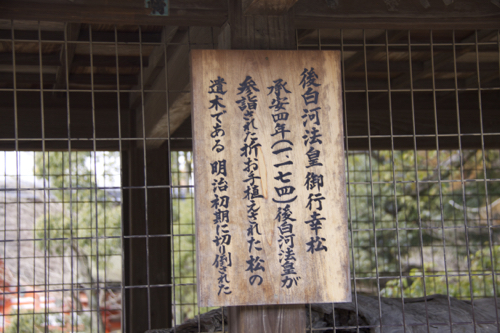 後白河法皇御行幸松
承安四年(一、一七四)後白河法皇が
参詣された折お手植をされた松の
遺木である 明治初期に切り倒された